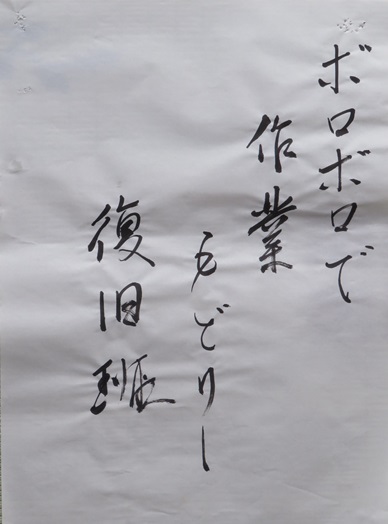 ボロボロで
作業
もどりし
復旧班